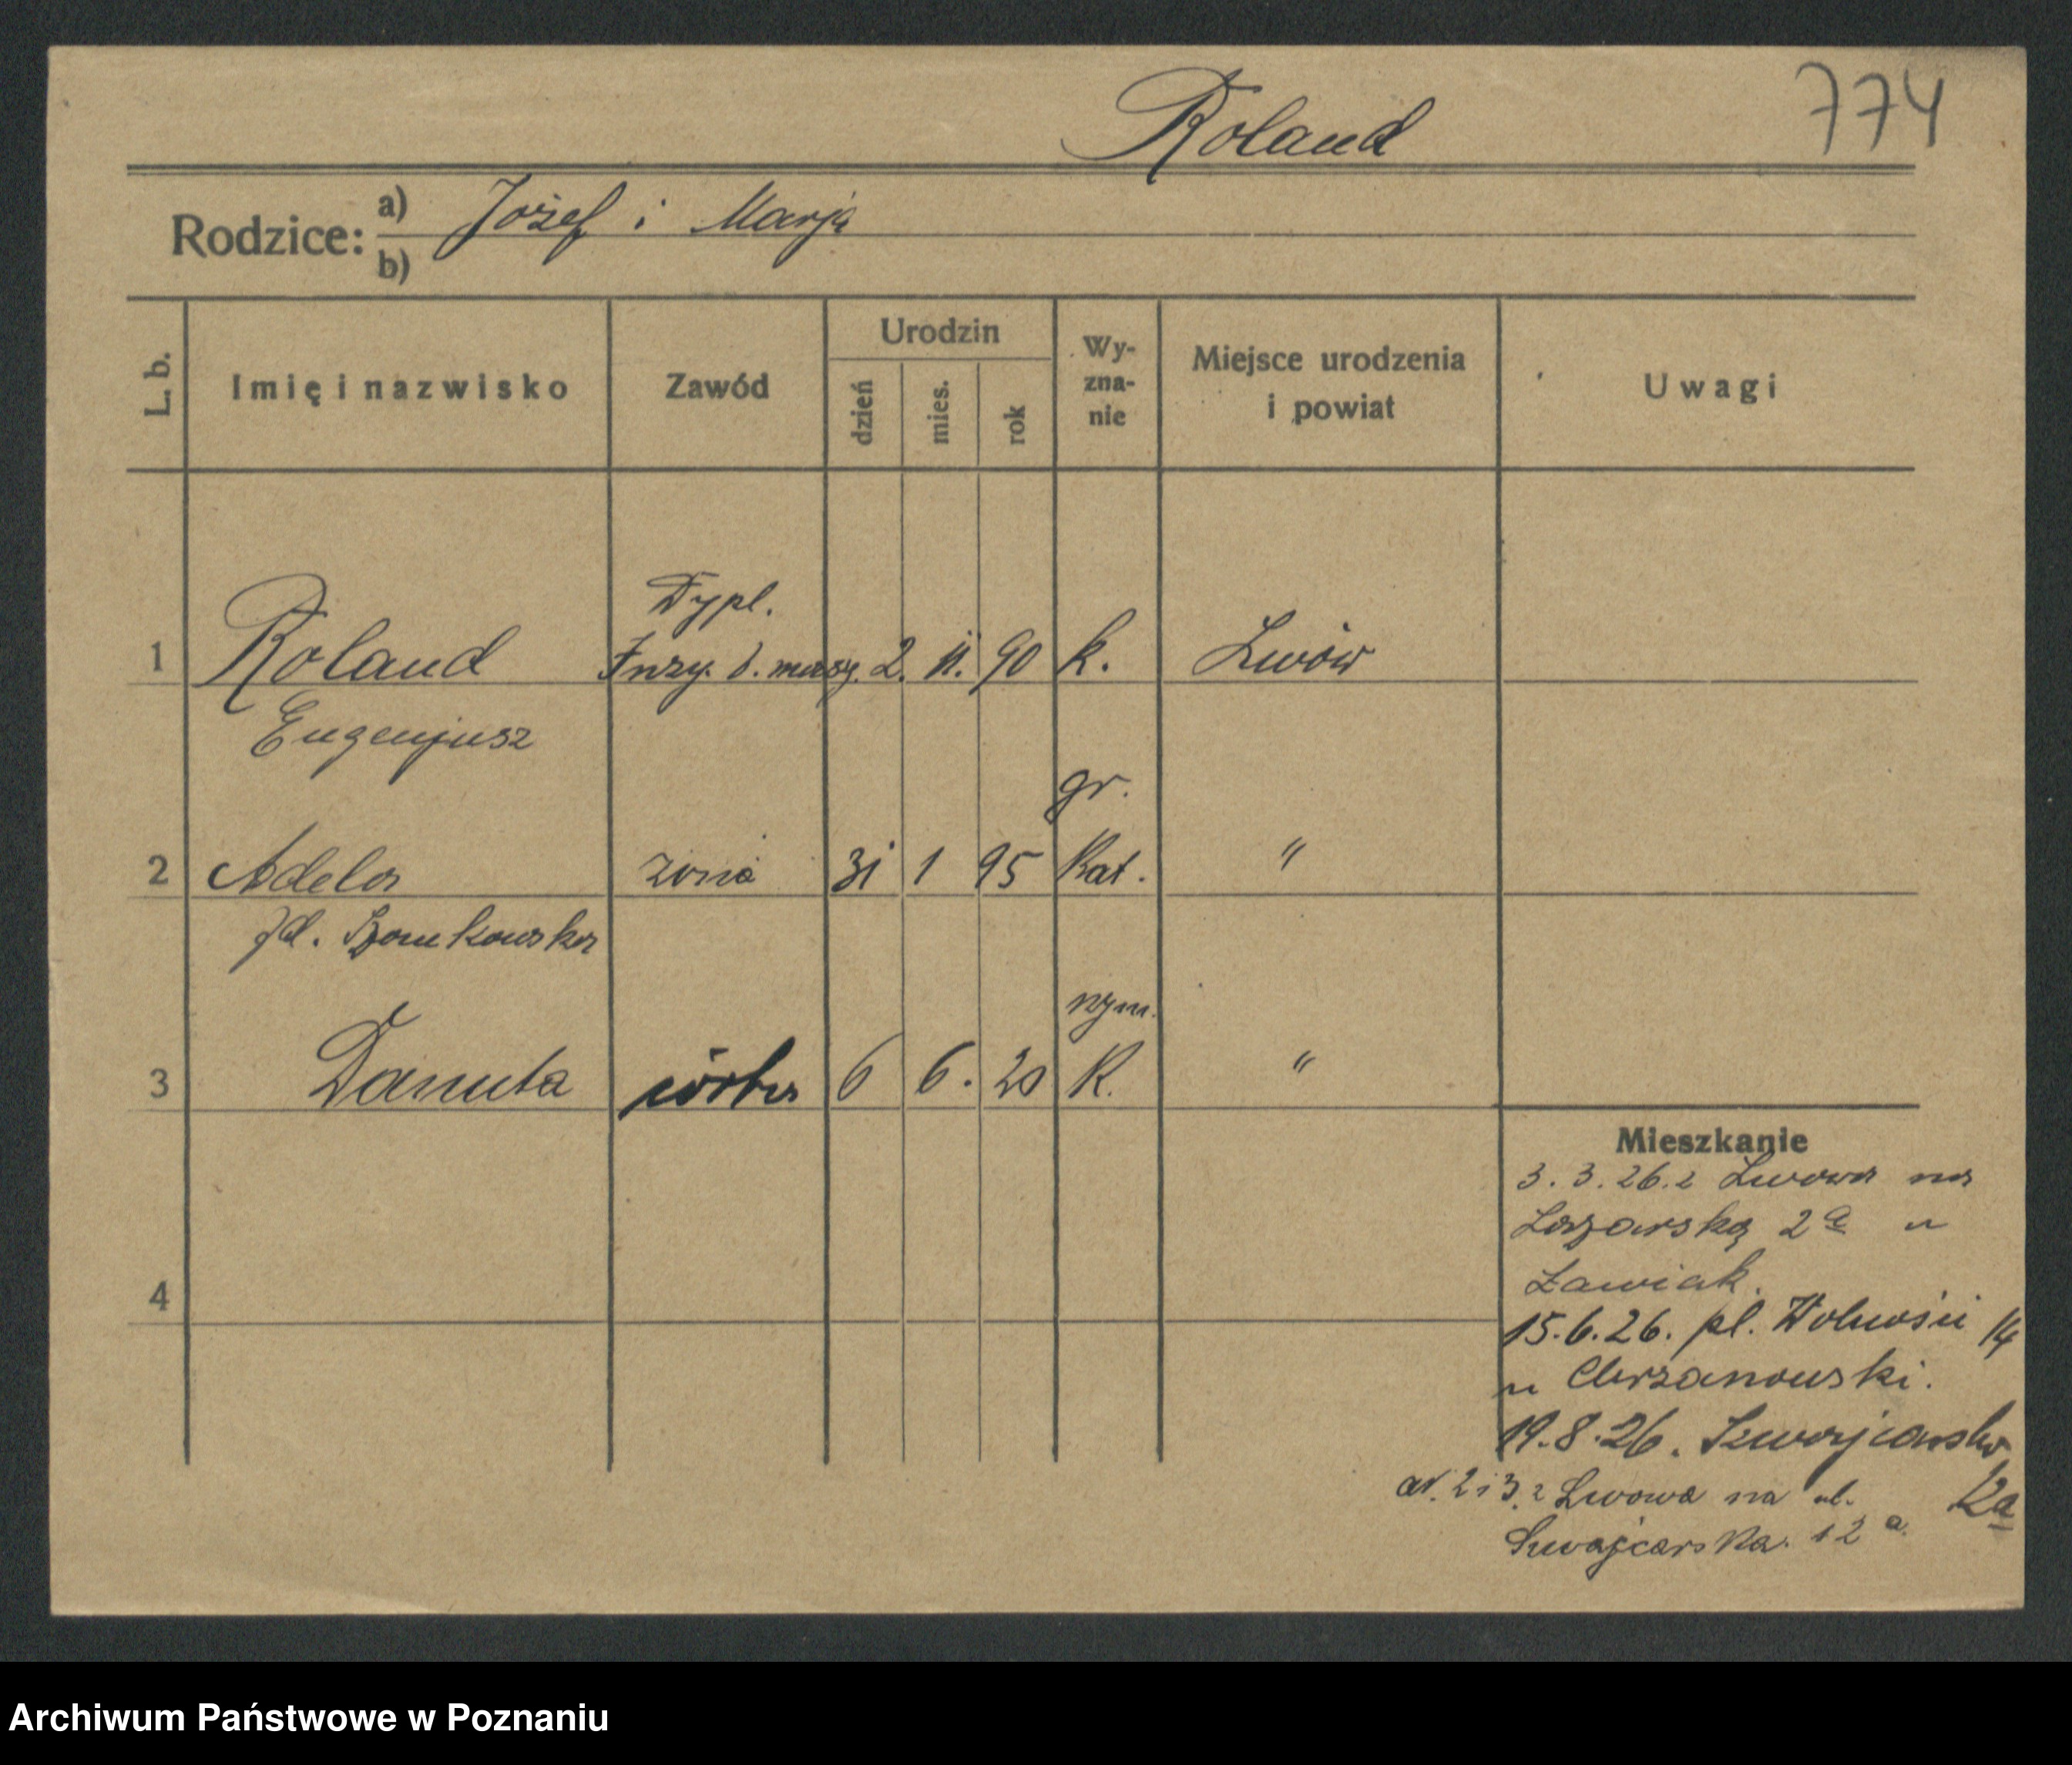 774
Roland
Rodzice: a) Jożef i Marja
b)
L. b. Imię i nazwisko Zawód Urodzin dzień mies. rok Wy-zna-nie Miejsce urodzenia i powiat Uwagi
Dypl.
1 Roland Inży. b. maszy. 2. 11. 90 k. Lwów
Eugenjusz
gr.
2 Adela żona 31 1 95 Kat. "
rzym.
3 Danuta córka 6 6. 20 K. "
Mieszkanie
3. 3. 26. z Lwowa na
Łazarską 2a u
Ławiak.
4
15.6.26. pl. Wolności 14
u Chrzanowski.
19.8.26. Szwajcarska
12a
ad. 2 i 3. z Lwowa na ul.
Szwajcarska. 12a.
Archiwum Państwowe w Poznaniu